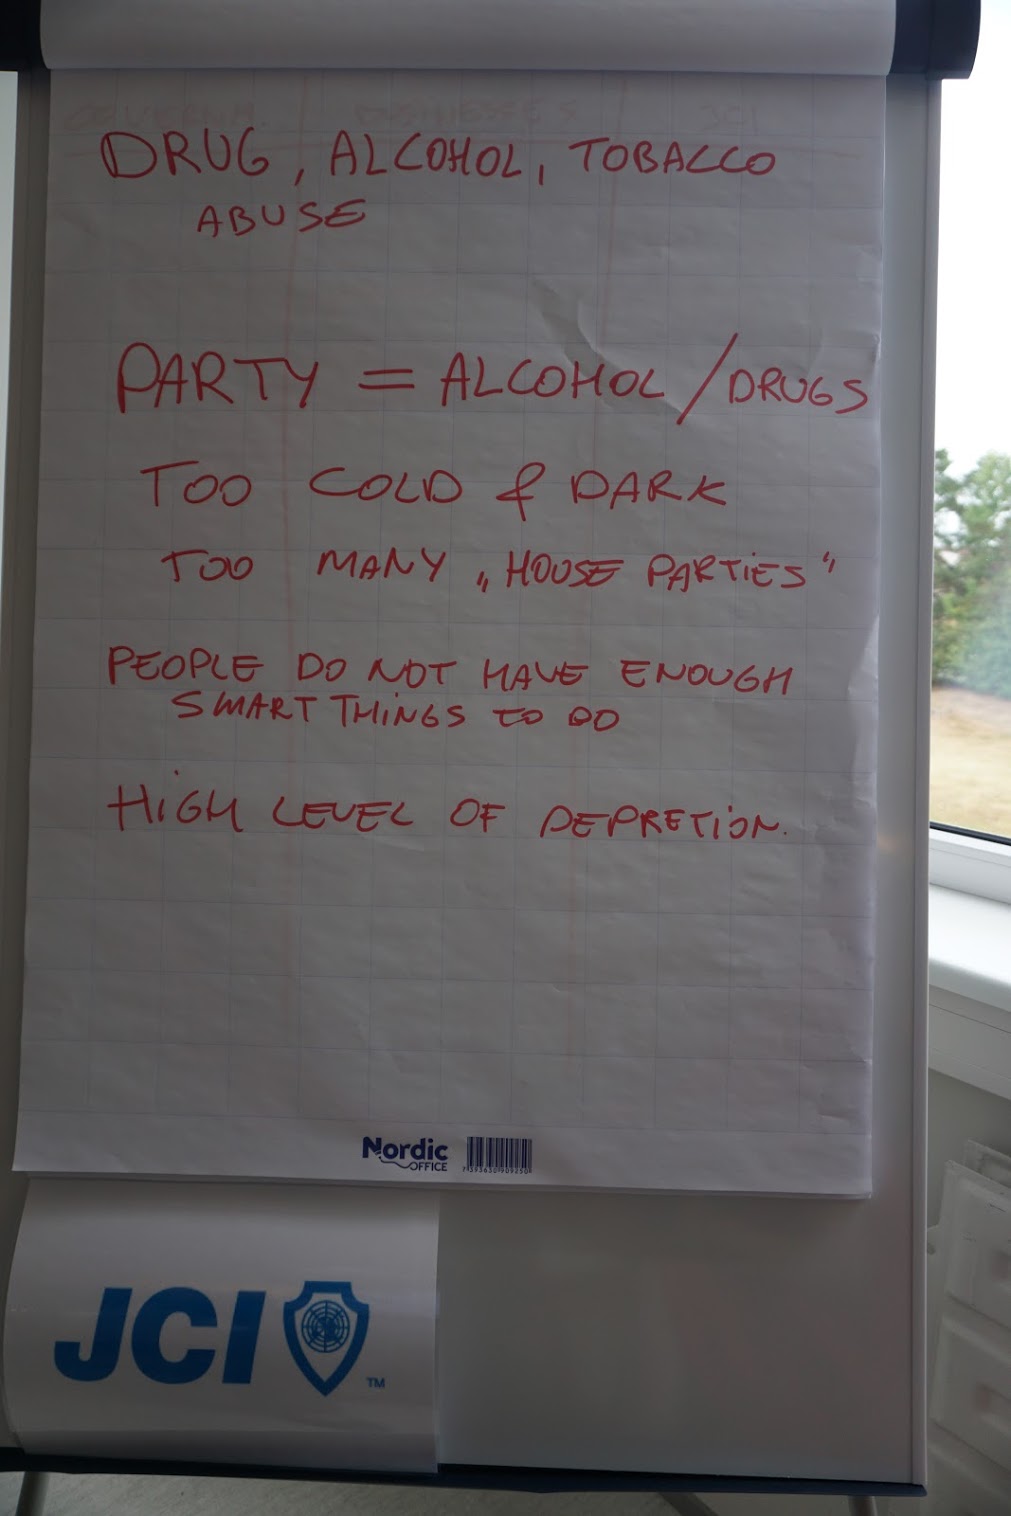 DRUG, ALCOHOL, TOBACCO
ABUSE
PARTY = ALCOHOL/DRUGS
TOO COLD & DARK
TOO MANY „HOUSE PARTiES“
PEOPLE DO NOT HAVE ENOUGH
SMART THiNGS TO DO
HiGH LEVEL OF DEPRETiON.
Nordic
OFFICE
JCI
TM